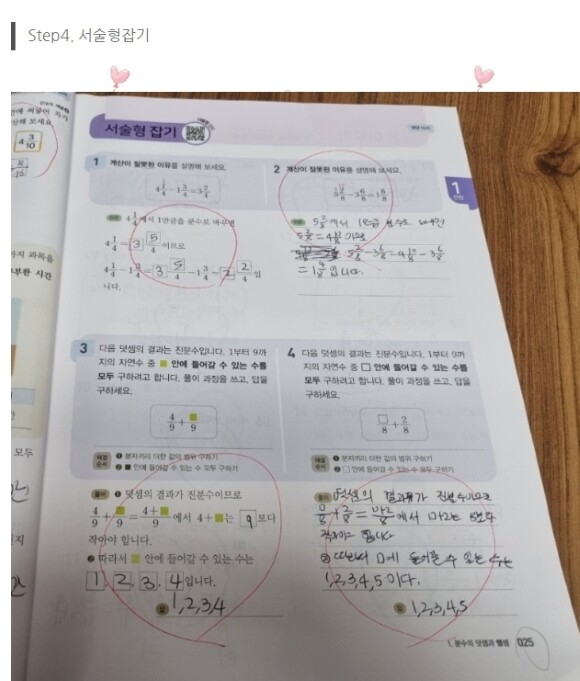 Step4. 서술형잡기
서술형 잡기
1 계산이 잘못된 이유를 설명해 보세요.
4 1/4 - 1 3/4 = 3 2/4
4 1/4 에서 1만큼을 분수로 바꾸면
4 1/4 = 3 5/4 이므로
4 1/4 - 1 3/4 = 3 5/4 - 1 3/4 = 2 2/4 입
니다.
2 계산이 잘못된 이유를 설명해 보세요.
5 2/8에서 1만큼 분수로 바꾸면
5 2/8 = 4 10/8 이므로
5 2/8 - 3 6/8 = 4 10/8 - 3 6/8
= 1 4/8 입니다.
1
단원
3 다음 덧셈의 결과는 진분수입니다. 1부터 9까
지의 자연수 중 ■ 안에 들어갈 수 있는 수를
모두 구하려고 합니다. 풀이 과정을 쓰고, 답을
구하세요.
4/9 + ■/9
해결 순서
❶ 분자끼리 더한 값의 범위 구하기
❷ ■ 안에 들어갈 수 있는 수 모두 구하기
풀이 ❶ 덧셈의 결과가 진분수이므로
4/9 + ■/9 = 4+■/9 에서 4+■는 9 보다
작아야 합니다.
❷ 따라서 ■ 안에 들어갈 수 있는 수는
1, 2, 3, 4 입니다.
답 1,2,3,4
4 다음 덧셈의 결과는 진분수입니다. 1부터 9까
지의 자연수 중 □ 안에 들어갈 수 있는 수를
모두 구하려고 합니다. 풀이 과정을 쓰고, 답을
구하세요.
□/8 + 2/8
해결 순서
❶ 분자끼리 더한 값의 범위 구하기
❷ □ 안에 들어갈 수 있는 수 모두 구하기
풀이 덧셈의 결과가 진분수이므로
□/8 + 2/8 = □+2/8 에서 □+2는 8보다
작아야 합니다
② 따라서 □에 들어갈 수 있는 수는
1,2,3,4,5 이다.
답 1,2,3,4,5
1. 분수의 덧셈과 뺄셈 025